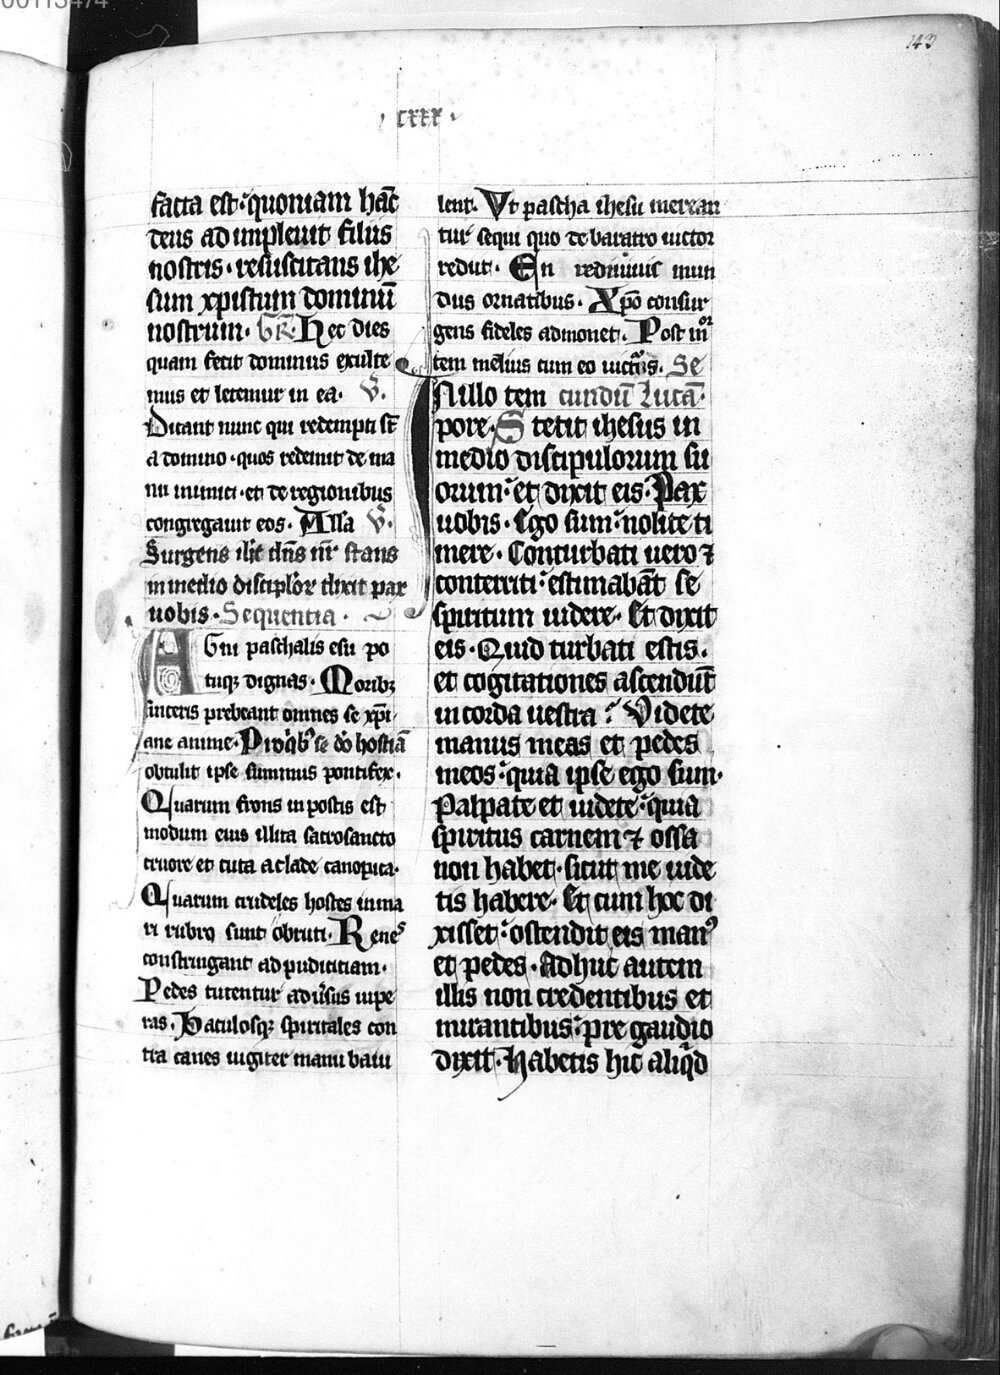 00113474
143
· cxxx ·
facta est· quoniam hāc
deus adimpleuit filiis
nostris· resuscitans ihe
sum xpistum dominū
nostrum· GR̃. Hec dies
quam fecit dominus exulte
mus et letemur in ea· V̷.
Dicant nunc qui redempti sūt
a domino· quos redemit de ma
nu inimici· et de regionibus
congregauit eos· Alla V̷.
Surgens ihc̄ dn̄s nr̄ stans
in medio disciplor̄ dixit pax
uobis· Sequentia·
Agni paschalis esu po
tuqꝫ dignas· Moribꝫ
sinceris prebeant omnes se xpi
ane anime· Pro qͥbꝰ se dō hostiā
obtulit ipse summus pontifex·
Quarum frons in postis est
modum eius illita sacrosancto
cruore et tuta a clade canopica·
Quarum crudeles hostes in ma
ri rubro sunt obruti· Renes
constringant ad pudicitiam·
Pedes tutentur adūsus uipe
ras· Baculosqꝫ spiritales con
tra canes iugiter manu baiu
lent· Vt pascha ihesu merean
tur sequi quo de baratro uictor
rediit· En rediuiuus mun
dus ornatibus· Xpō consur
gens fideles admonet· Post mͦr
tem melius cum eo uictͣris· Se
In illo tem cundū Lucā·
pore· Stetit ihesus in
medio discipulorum su
orum· et dixit eis· Pax
uobis· Ego sum· nolite ti
mere· Conturbati uero ⁊
conterriti· estimabāt se
spiritum uidere· Et dixit
eis· Quid turbati estis·
et cogitationes ascendūt
in corda uestra? Videte
manus meas et pedes
meos· quia ipse ego sum·
Palpate et uidete· quia
spiritus carnem ⁊ ossa
non habet· sicut me uide
tis habere· Et cum hoc di
xisset· ostendit eis manꝰ
et pedes· Adhuc autem
illis non credentibus et
mirantibus· pre gaudio
dixit· Habetis hic aliqͥd